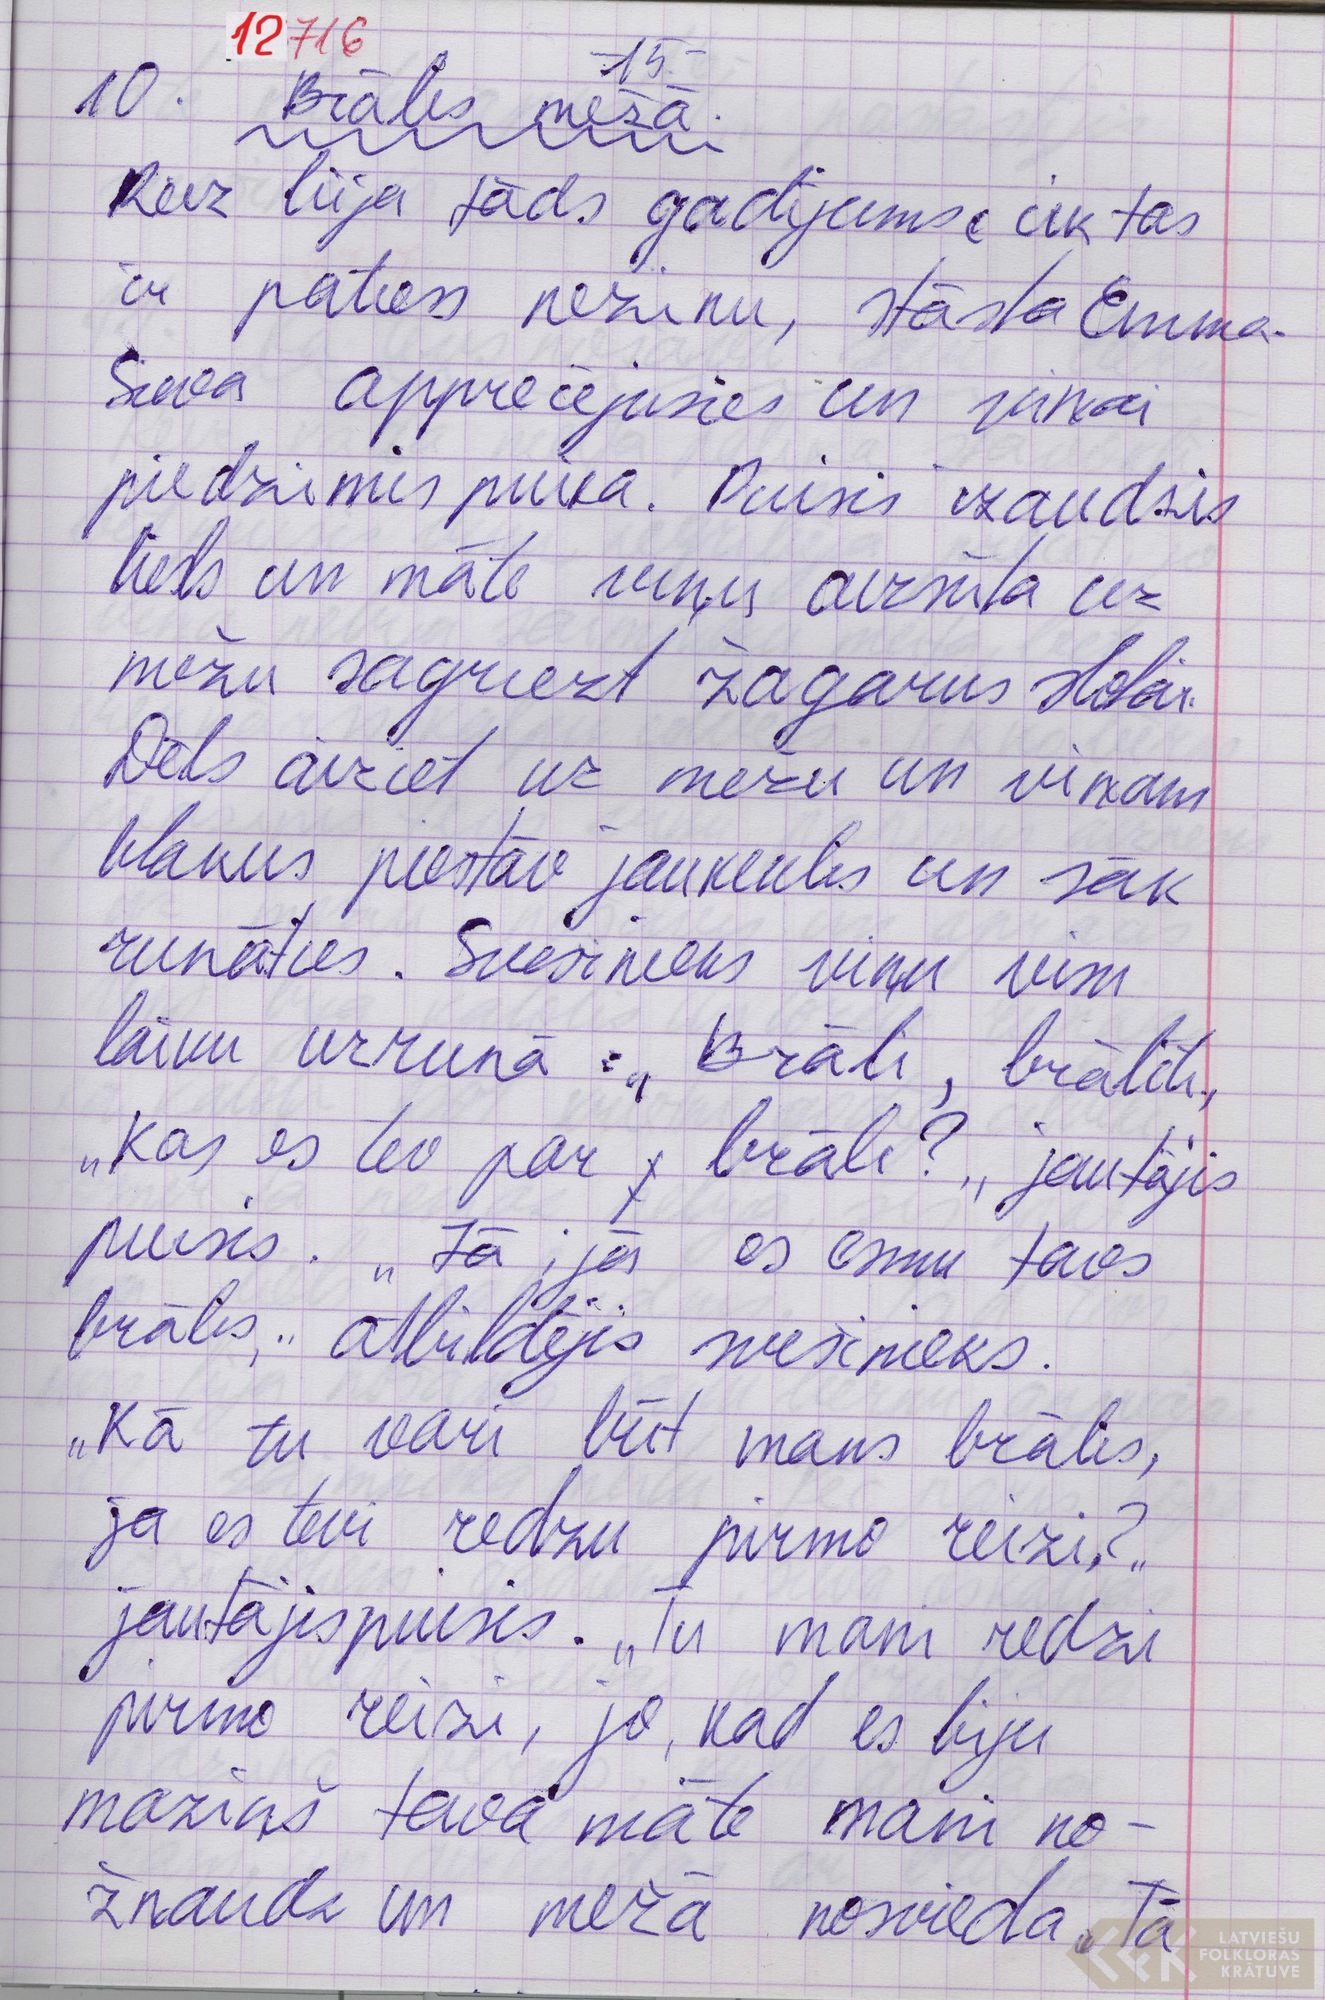 12716
-15-
10. Brālis mežā.
Reiz bija tāds gadījums, cik tas
ir patiess nezinu, stāsta Emma.
Sieva apprecējusies un viņai
piedzimis puika. Puisis izaudzis
liels un māte viņu aizsūta uz
mežu sagriezt žagarus slotai.
Dēls aiziet uz mežu un viņam
blakus piestāv jauneklis un sāk
runāties. Svešinieks viņu visu
laiku uzrunā: „Brāli, brālīti,
„Kas es tev par brāli?„ jautājis
puisis. „Tā, jā es esmu tavs
brālis,„ atbildējis svešinieks.
„Kā tu vari būt mans brālis,
ja es tevi redzu pirmo reizi,?„
jautājis puisis. „Tu mani redzi
pirmo reizi, jo, kad es biju
maziņš tava māte mani no-
žņaudz un mežā nosvieda„ Tā
LATVIEŠU
FOLKLORAS
KRĀTUVE